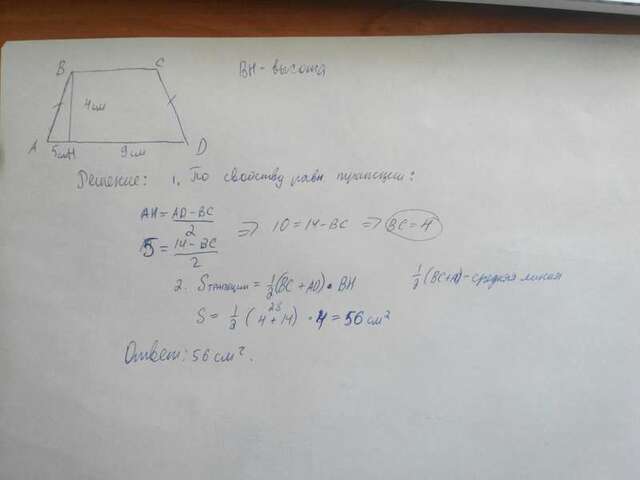 B C BH - высота
4 см
A 5 см H 9 см D
Решение: 1. По свойству равн трапеции:
AH = AD - BC / 2
5 = 14 - BC / 2 => 10 = 14 - BC => BC = 4
2. Sтрапеции = 1/2 (BC + AD) · BH 1/2 (BC + AD) - средняя линия
S = 1/2 (4 + 14) · 4 = 56 см²
28
Ответ: 56 см².